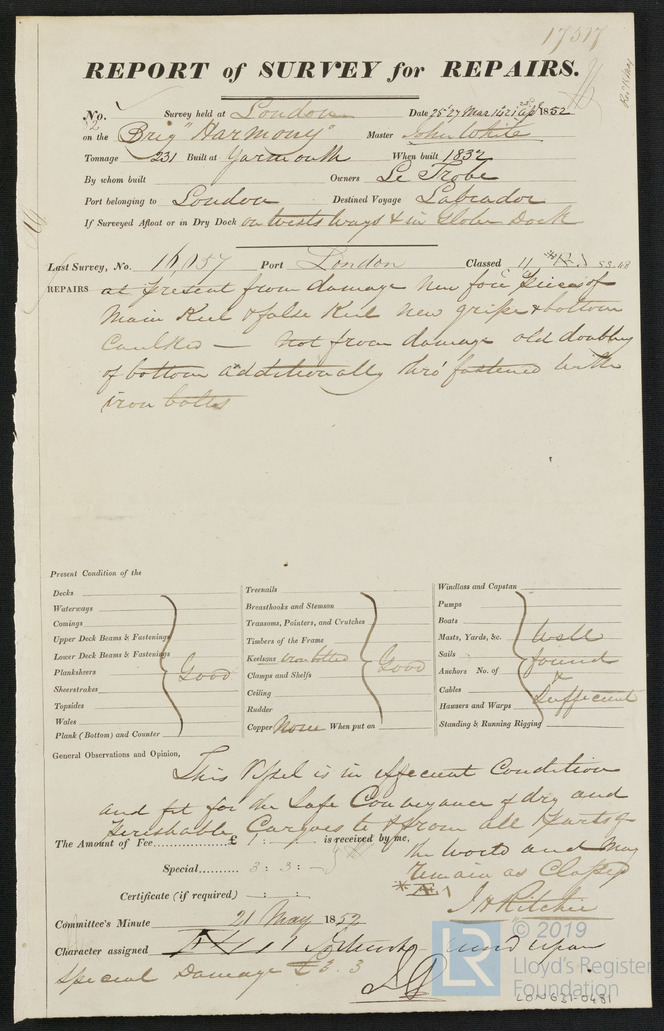 17517
REPORT of SURVEY for REPAIRS.
No. Survey held at London Date 25 27 Mar 1852
on the Brig "Harmony" Master John White
Tonnage 231 Built at Yarmouth When built 1832
By whom built Owners Le Trobe
Port belonging to London Destined Voyage Labrador
If Surveyed Afloat or in Dry Dock on Wests Ways & in Globe Dock
Last Survey, No. 16,057 Port London Classed 53.48
REPAIRS at present from damage New fore Pieces of
Main Keel & false Keel New gripe & bottom
Caulked — Not from damage old doubling
of bottom additionally thro' fastened with
iron bolts
Present Condition of the
Decks
Waterways
Comings
Upper Deck Beams & Fastenings
Lower Deck Beams & Fastenings
Plansheers
Sheerstrakes
Topsides
Wales
Plank (Bottom) and Counter
Good
Treenails
Breasthooks and Stemson
Transoms, Pointers, and Crutches
Timbers of the Frame
Keelsons iron bolted
Clamps and Shelfs
Ceiling
Rudder
Copper None When put on
Good
Windlass and Capstan
Pumps
Boats
Masts, Yards, &c.
Sails
Anchors No. of
Cables
Hausers and Warps
Standing & Running Rigging
Well
found
&
Sufficient
General Observations and Opinion,
This Vessel is in efficient Condition
and fit for the Safe Conveyance of dry and
Perishable Cargoes to & from all Parts of
the World and May
remain as Classed
The Amount of Fee £ is received by me,
Special 3 : 3 : -
Certificate (if required)
J H Ritchie
Committee's Minute 21 May 1852
Character assigned
Special Damage £3.3
© 2019
LR
Lloyd's Register
Foundation
LON631-0481